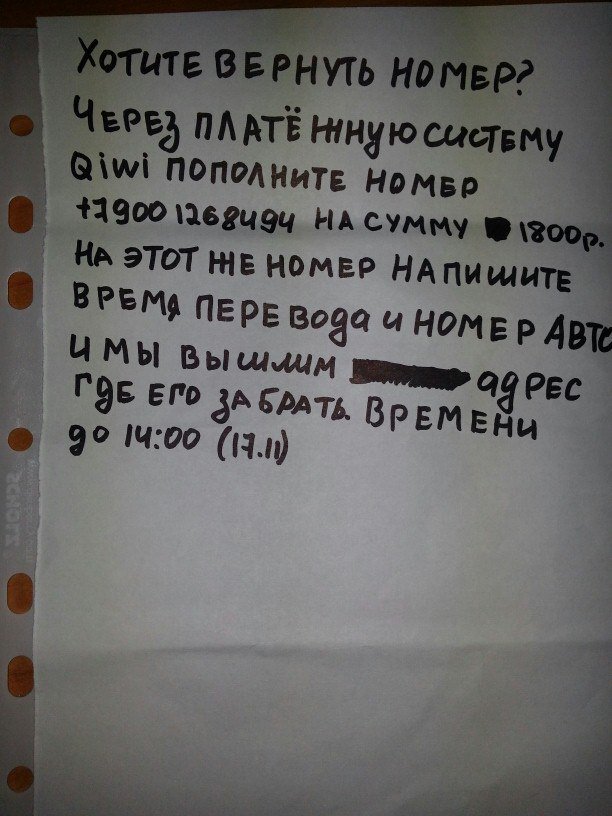 Хотите вернуть номер?
Через платёжную систему
Qiwi пополните номер
+79001268494 на сумму 1800р.
на этот же номер напишите
время перевода и номер авто
и мы вышлим адрес
где его забрать. Времени
до 14:00 (17.11)